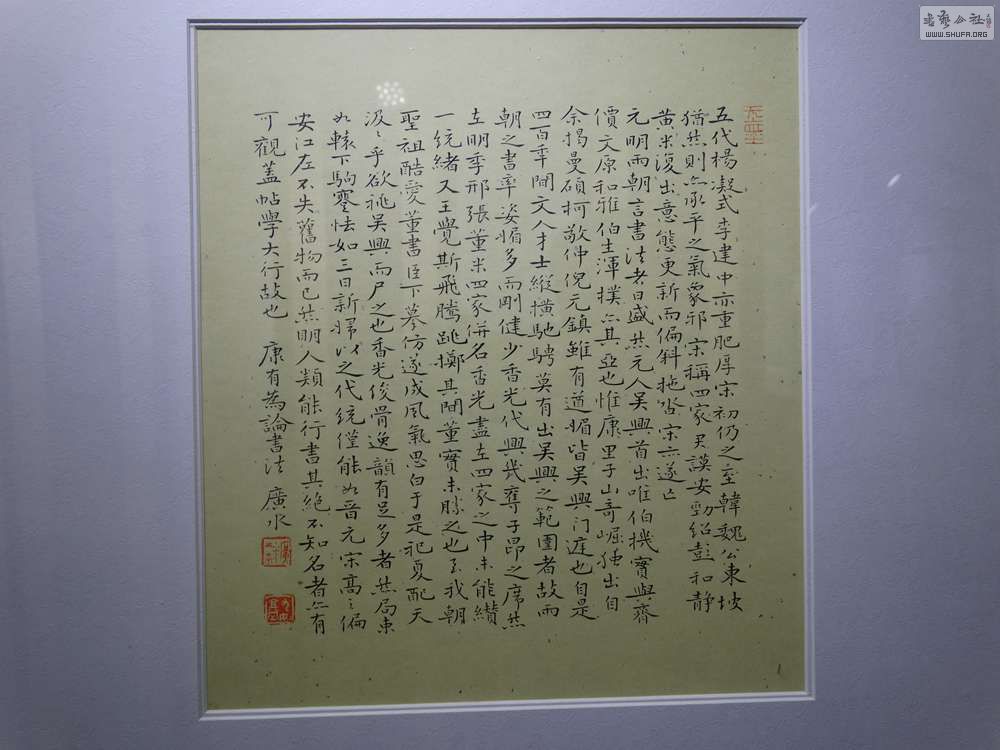 五代楊凝式李建中亦重肥厚宋初仍之至韓魏公東坡
猶然則亦承平之氣象邪宋稱四家君謨安勁紹彭和靜
黃米復出意態更新而偏斜拖沓宋亦遂亡
元明兩朝言書法者日盛然元人吳興首出唯伯機實與齊
價文原和雅伯生渾撲亦其亞也惟康里子山奇崛獨出自
余揭曼碩柯敬仲倪元鎮雖有遒媚皆吳興门庭也自是
四百年間文人才士縱橫馳騁莫有出吳興之範圍者故兩
朝之書率姿媚多而剛健少香光代興幾奪子昂之席然
在明季邢張董米四家併名香光盡在四家之中未能纘
一統緒又王覺斯飛騰跳擲其間董實未勝之也至我朝
聖祖酷愛董書臣下摹仿遂成風氣思白于是祀夏配天
汲々乎欲祧吳興而尸之也香光俊骨逸韻有足多者然局束
如轅下駒蹇怯如三日新婦以之代統僅能如晉元宋高之偏
安江左不失舊物而已然明人類能行書其絕不知名者亦有
可觀蓋帖學大行故也 康有為論書法 廣水
书艺公社
WWW.SHUFA.ORG